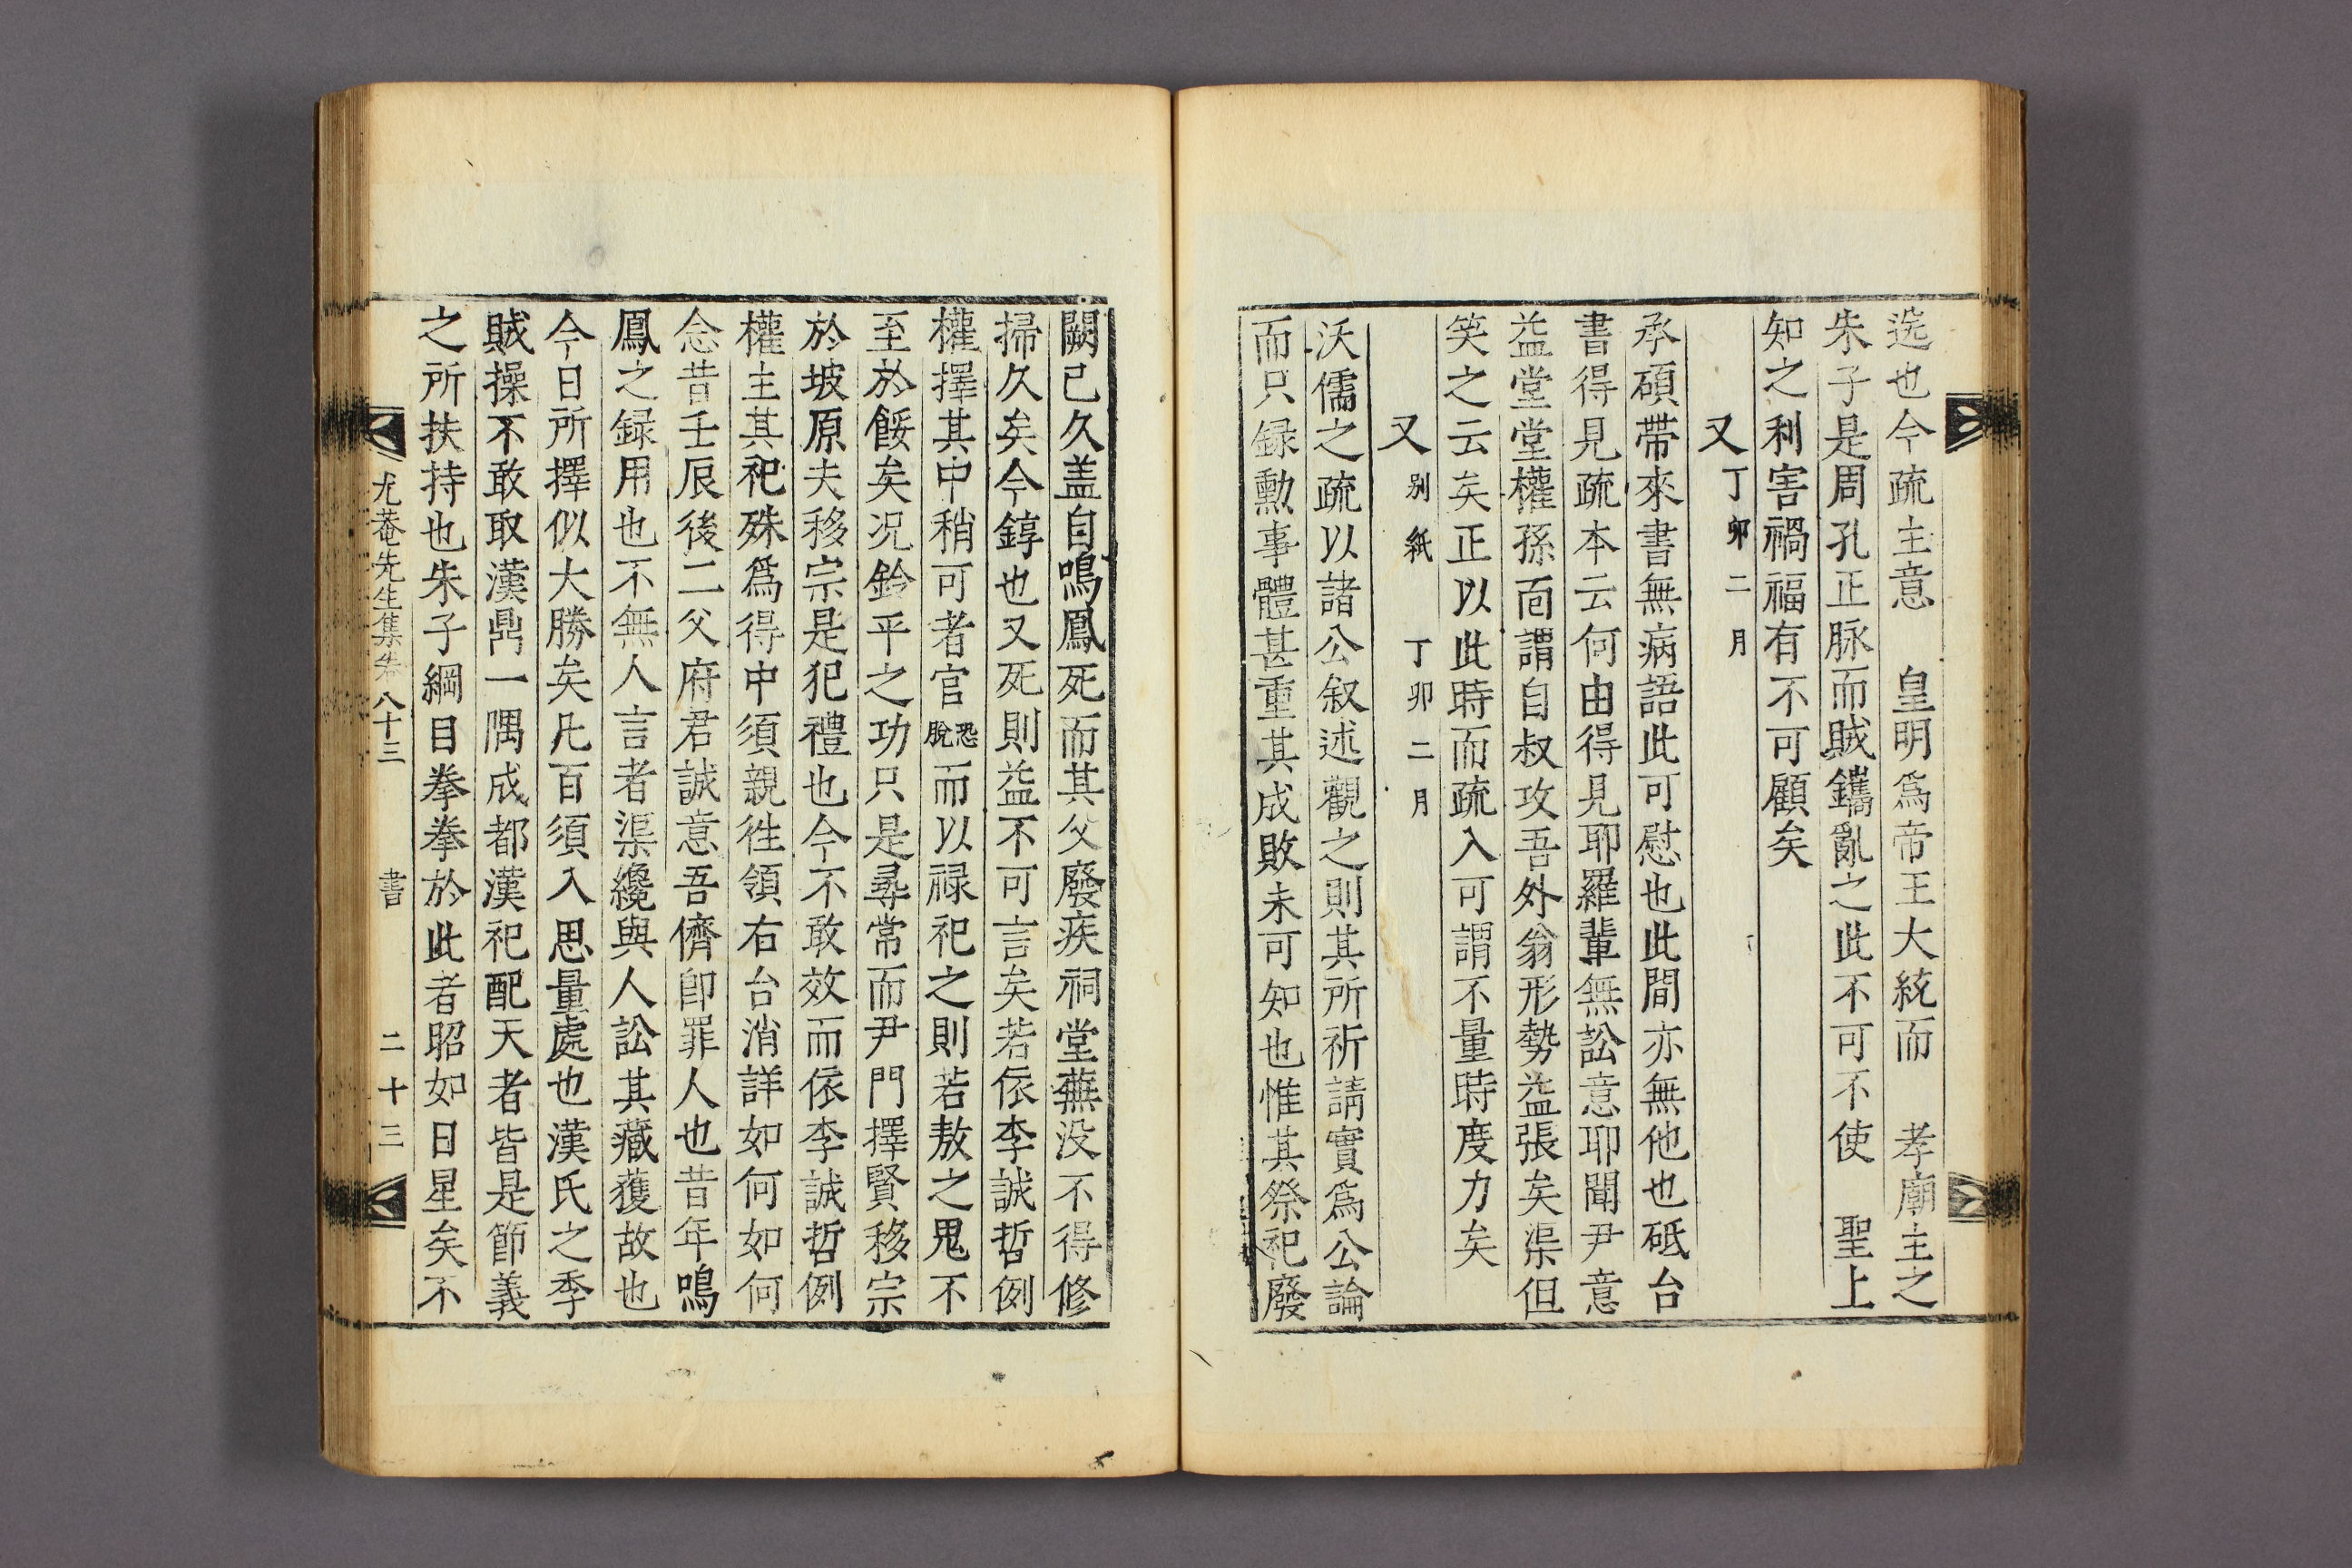 选也今疏主意 皇明爲帝王大統而 孝廟主之
朱子是周孔正脉而賊鑴亂之此不可不使 聖上
知之利害禍福有不可顧矣
又丁卯二月
承碩帶來書無病語此可慰也此間亦無他也砥台
書得見疏本云何由得見耶羅輩無訟意耶聞尹意
益堂堂權孫面謂自叔攻吾外翁形勢益張矣渠但
笑之云矣正以此時而疏入可謂不量時度力矣
又别紙 丁卯二月
沃儒之疏以諸公叙述觀之則其所祈請實爲公論
而只録勳事體甚重其成敗未可知也惟其祭祀廢
闕已久盖自鳴鳳死而其父廢疾祠堂蕪没不得修
掃久矣今錞也又死則益不可言矣若依李誠哲例
權擇其中稍可者官恐脫而以禄祀之則若敖之鬼不
至於餒矣况鈴平之功只是尋常而尹門擇賢移宗
於坡原夫移宗是犯禮也今不敢效而依李誠哲例
權主其祀殊爲得中須親徃領右台消詳如何如何
念昔壬辰後二父府君誠意吾儕卽罪人也昔年鳴
鳳之録用也不無人言者渠纔與人訟其藏獲故也
今日所擇似大勝矣凢百須入思量處也漢氏之季
賊操不敢取漢鼎一隅成都漢祀配天者皆是節義
之所扶持也朱子綱目拳拳於此者昭如日星矣不
尤菴先生集卷八十三 書 二十三